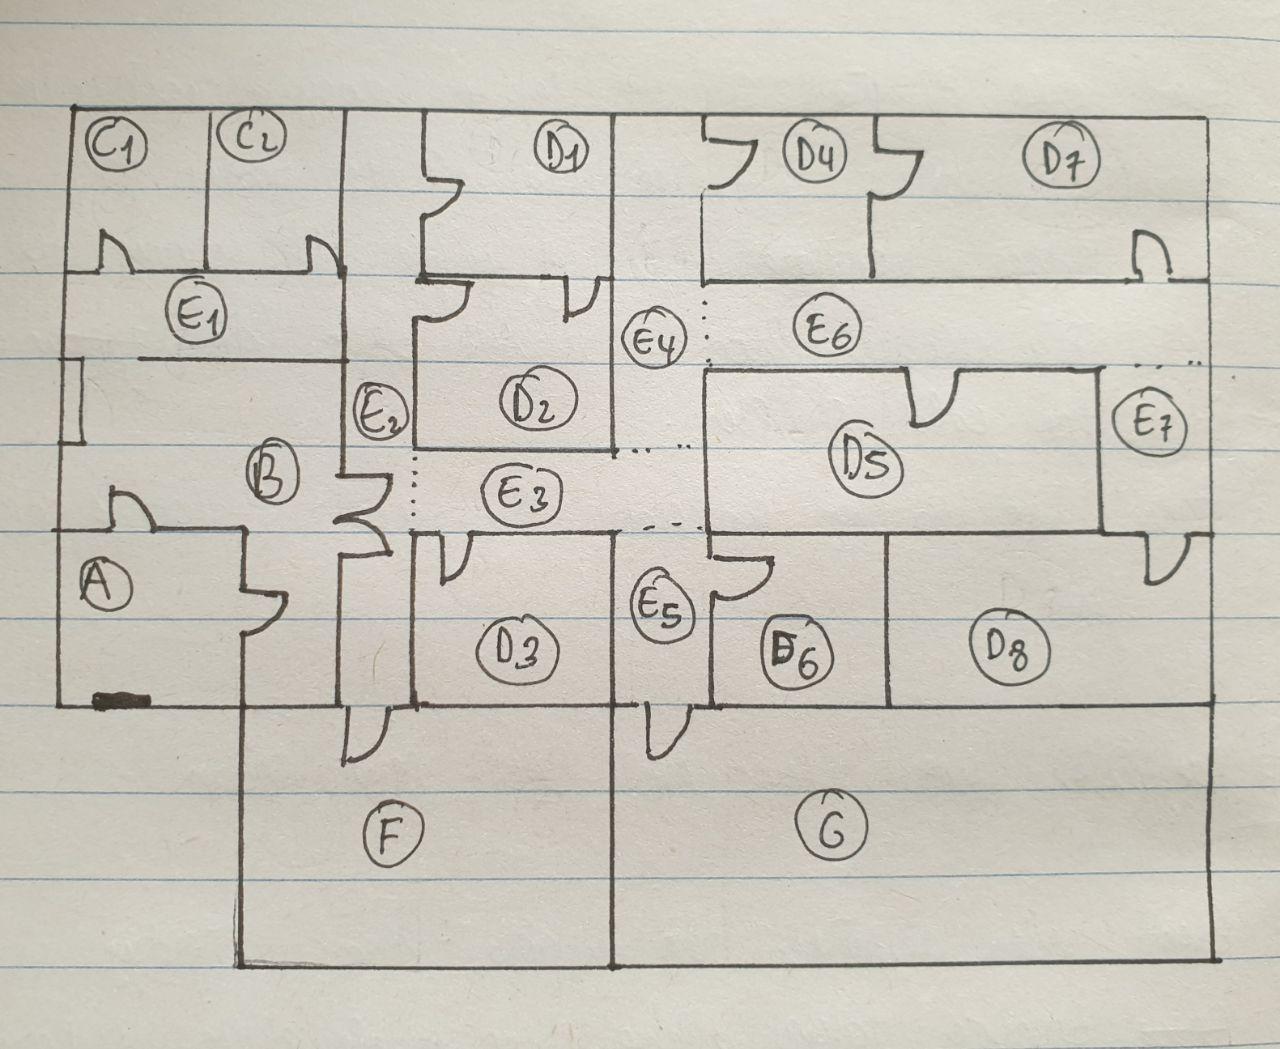 C1 C2 D1 D4 D7
E1 E4 E6
E2 D2 E7
B E3 D5
A E5
D3 D6 D8
F G